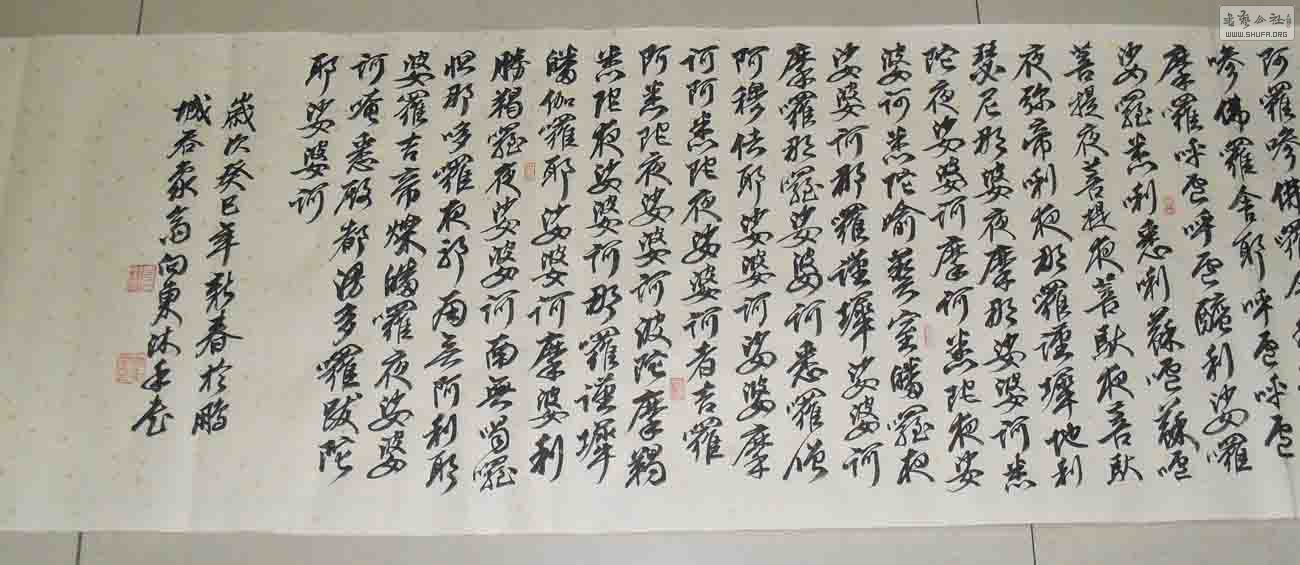 阿羅嘇佛羅舍
嘇佛羅舍耶呼盧呼盧
摩羅呼盧呼盧醯利娑羅
娑羅悉唎悉唎蘇嚧蘇嚧
菩提夜菩提夜菩馱夜菩馱
夜弥帝唎夜那羅謹墀地利
瑟尼那婆夜摩那娑婆訶悉
陀夜娑婆訶摩訶悉陀夜娑
婆訶悉陀喻藝室皤囉夜
娑婆訶那羅謹墀娑婆訶
摩囉那囉娑婆訶悉羅僧
阿穆佉耶娑婆訶娑婆摩
訶阿悉陀夜娑婆訶者吉羅
阿悉陀夜娑婆訶波陀摩羯
悉陀夜娑婆訶那囉謹墀
皤伽羅耶娑婆訶摩婆利
勝羯囉夜娑婆訶南無喝囉
怛那哆羅夜耶南无阿利耶
婆羅吉帝爍皤囉夜娑婆
訶唵悉殿都漫多羅跋陀
耶娑婆訶
歲次癸巳年新春於鵬
城吞象斋向東沐手書
WWW.SHUFA.ORG